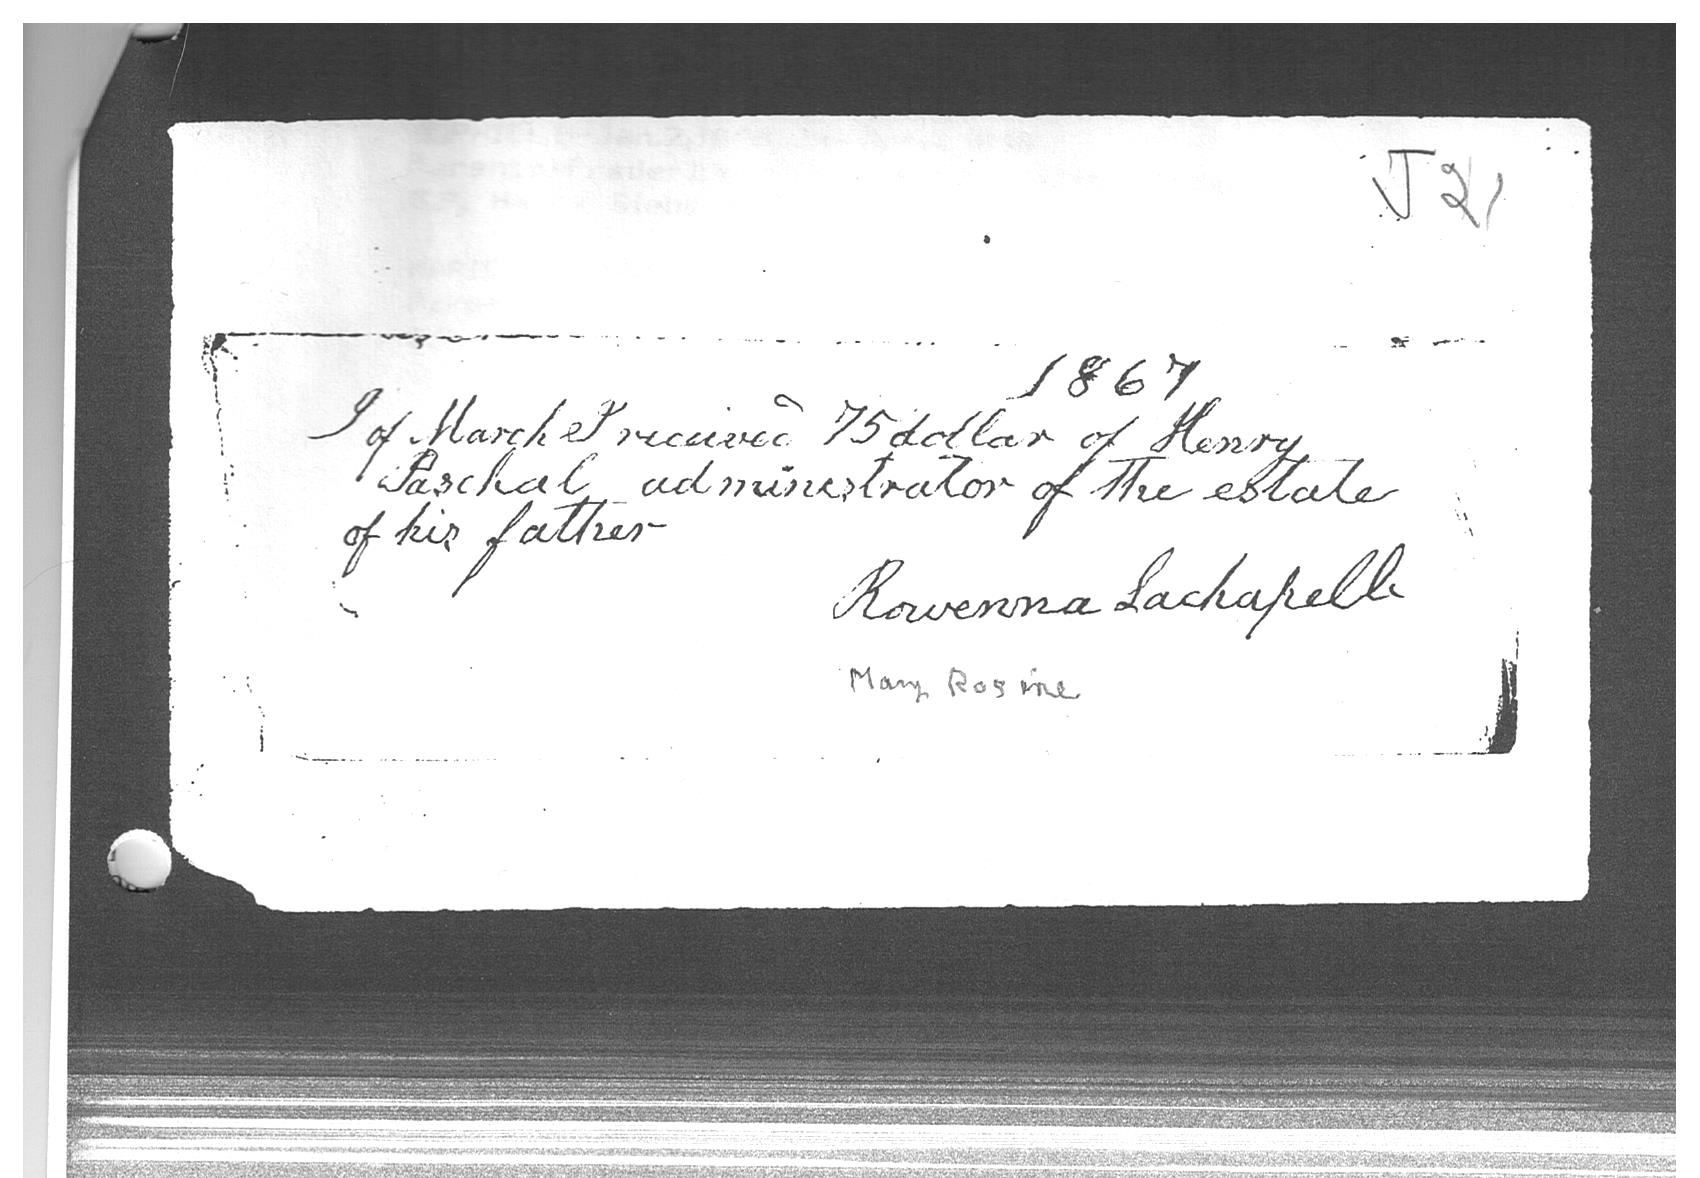 J 2
1867
I of March I received 75 dollar of Henry
Paschal administrator of the estate
of his father
Rowenna Lachapelle
Mary Rosine